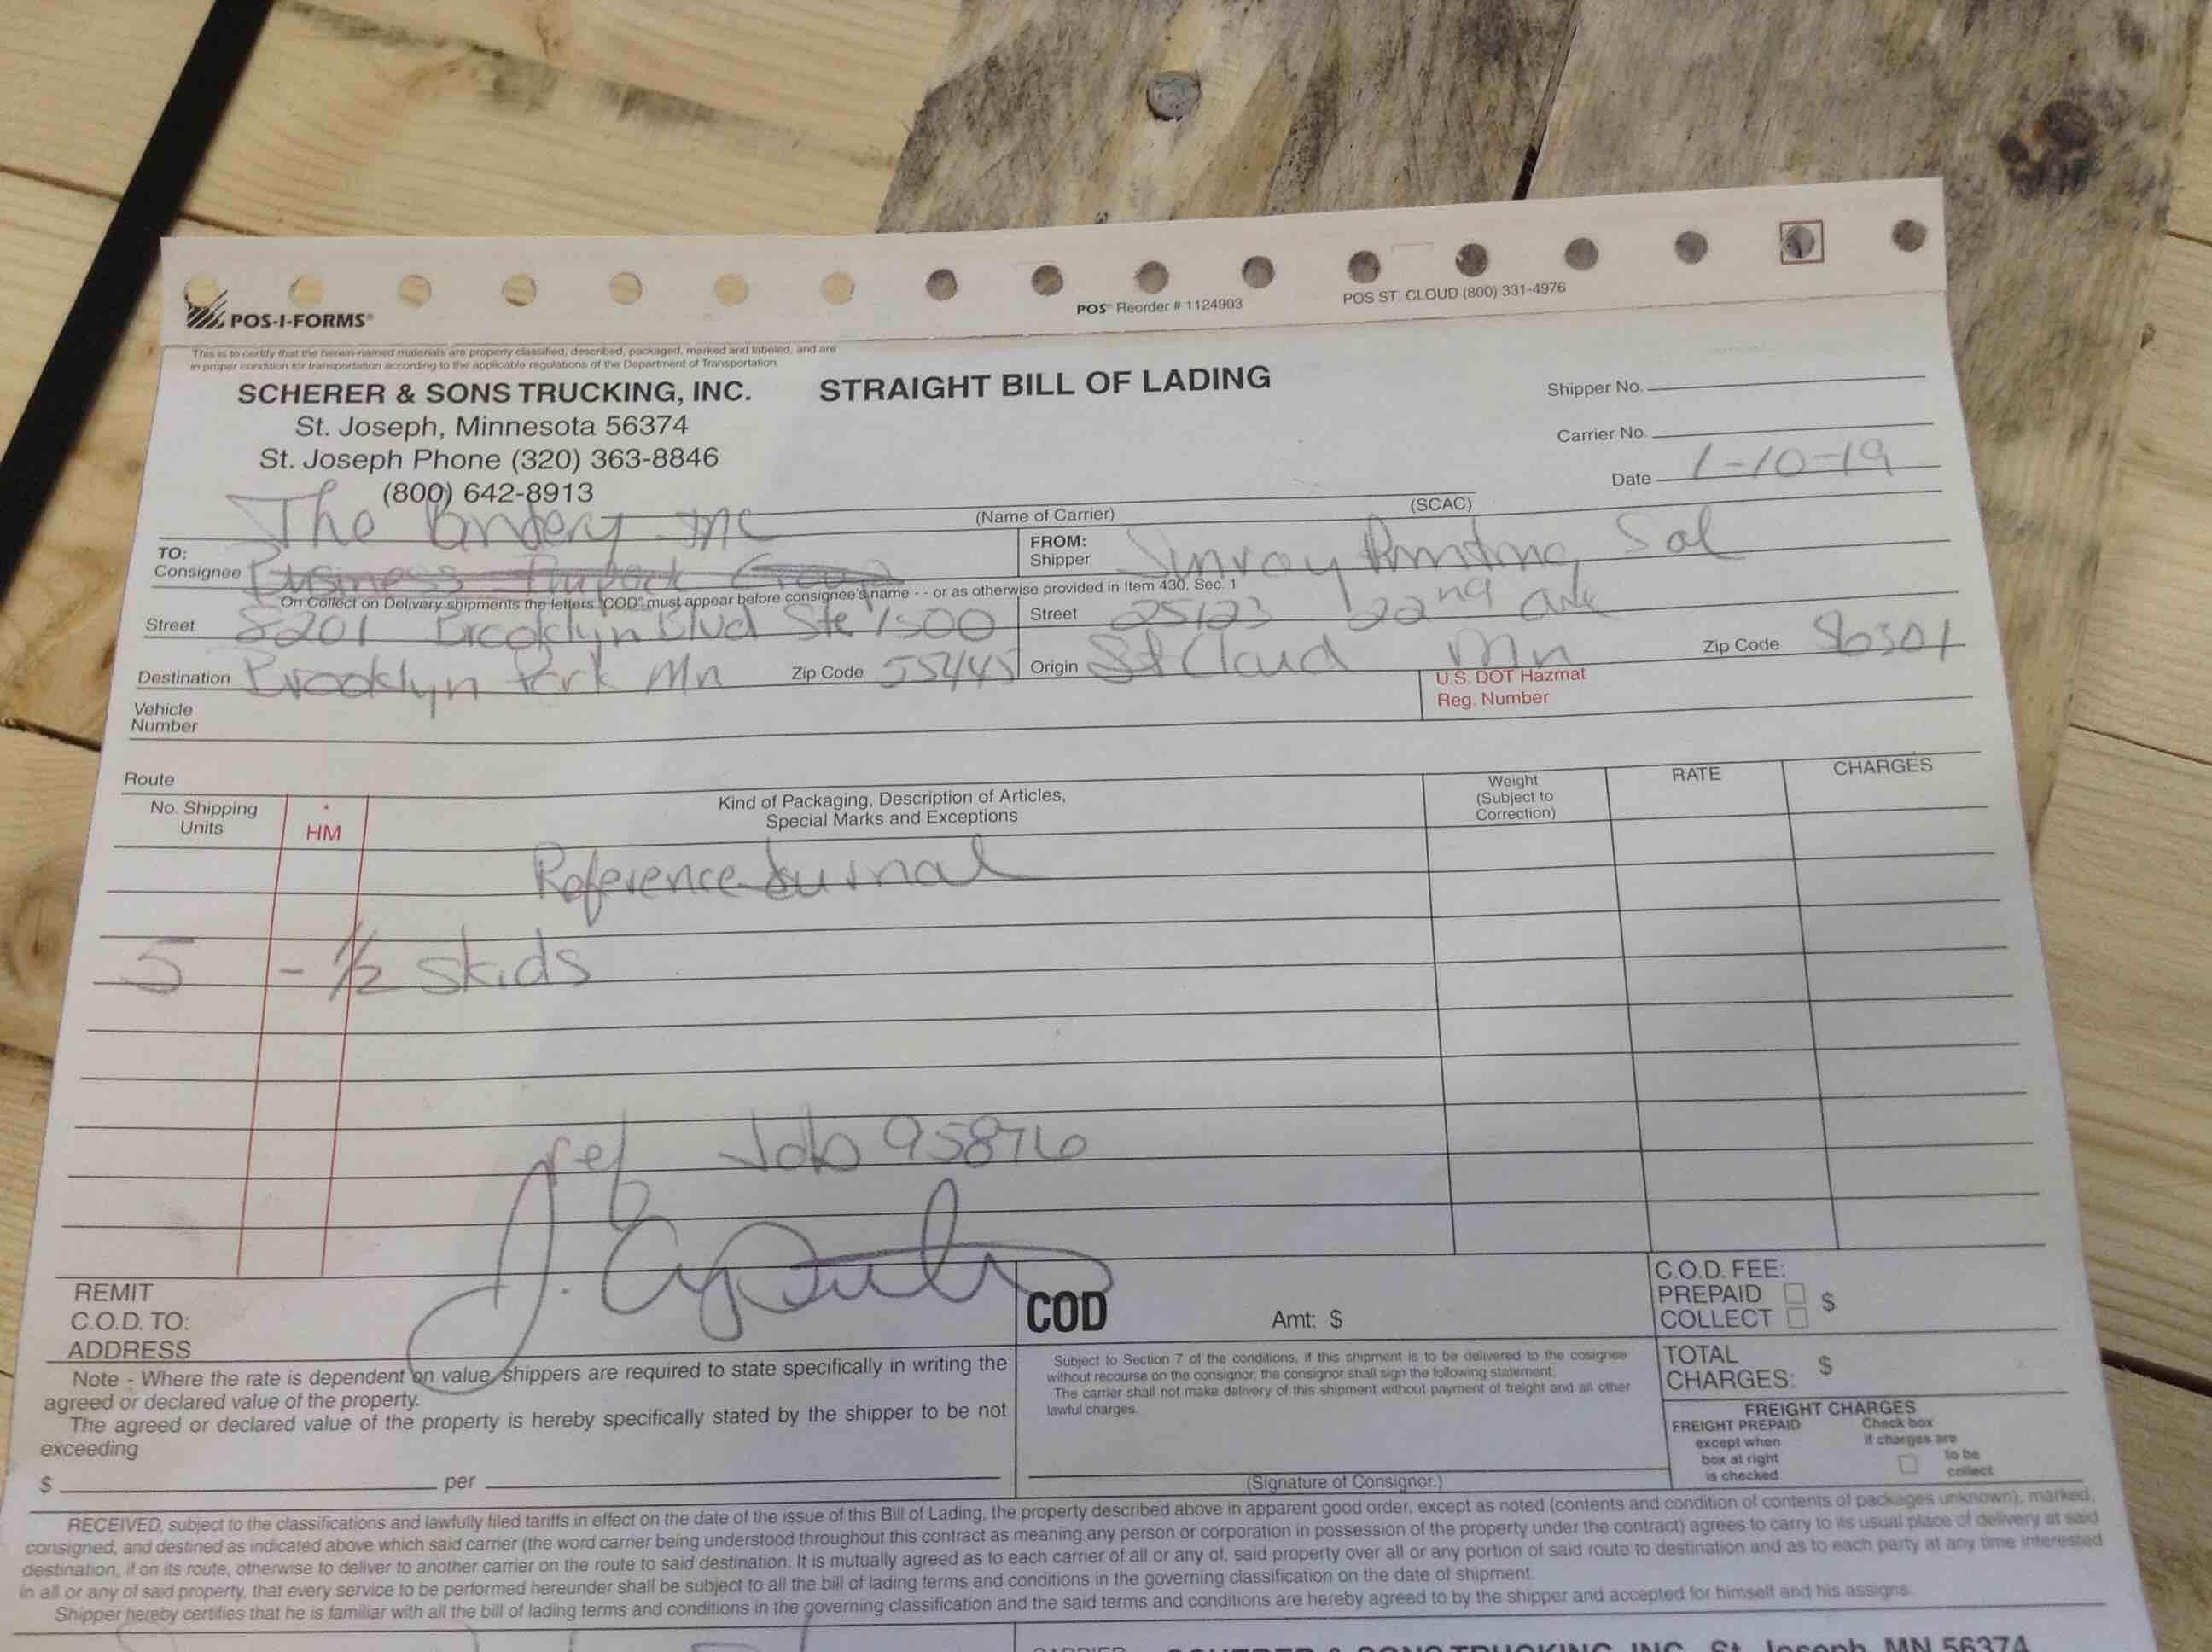 POS-I-FORMS®
POS® Reorder # 1124903
POS ST. CLOUD (800) 331-4976
This is to certify that the herein-named materials are properly classified, described, packaged, marked and labeled, and are
in proper condition for transportation according to the applicable regulations of the Department of Transportation.
SCHERER & SONS TRUCKING, INC.
STRAIGHT BILL OF LADING
St. Joseph, Minnesota 56374
St. Joseph Phone (320) 363-8846
(800) 642-8913
Shipper No.
Carrier No.
Date 1-10-19
(Name of Carrier)
(SCAC)
The Bindery Inc
TO:
Consignee Business Impact Group
FROM:
Shipper Sunray Printing Sol
On Collect on Delivery shipments the letters "COD" must appear before consignee's name - - or as otherwise provided in Item 430, Sec. 1
Street 8201 Brooklyn Blvd Ste 1500
Street 25123 22nd Ave
Destination Brooklyn Park Mn Zip Code 55445
Origin St Cloud Mn Zip Code 56301
Vehicle
Number
U.S. DOT Hazmat
Reg. Number
Route
No. Shipping
Units
*
HM
Kind of Packaging, Description of Articles,
Special Marks and Exceptions
Weight
(Subject to
Correction)
RATE
CHARGES
Reference Journal
5 - 1/2 skids
ref Job 95876
REMIT
C.O.D. TO:
ADDRESS
COD
Amt: $
C.O.D. FEE:
PREPAID $
COLLECT
Note - Where the rate is dependent on value, shippers are required to state specifically in writing the
agreed or declared value of the property.
The agreed or declared value of the property is hereby specifically stated by the shipper to be not
exceeding
$ per
Subject to Section 7 of the conditions, if this shipment is to be delivered to the cosignee
without recourse on the consignor, the consignor shall sign the following statement:
The carrier shall not make delivery of this shipment without payment of freight and all other
lawful charges.
(Signature of Consignor.)
TOTAL
CHARGES: $
FREIGHT CHARGES
FREIGHT PREPAID
except when
box at right
is checked
Check box
if charges are
to be
collect
RECEIVED, subject to the classifications and lawfully filed tariffs in effect on the date of the issue of this Bill of Lading, the property described above in apparent good order, except as noted (contents and condition of contents of packages unknown), marked,
consigned, and destined as indicated above which said carrier (the word carrier being understood throughout this contract as meaning any person or corporation in possession of the property under the contract) agrees to carry to its usual place of delivery at said
destination, if on its route, otherwise to deliver to another carrier on the route to said destination. It is mutually agreed as to each carrier of all or any of, said property over all or any portion of said route to destination and as to each party at any time interested
in all or any of said property, that every service to be performed hereunder shall be subject to all the bill of lading terms and conditions in the governing classification on the date of shipment.
Shipper hereby certifies that he is familiar with all the bill of lading terms and conditions in the governing classification and the said terms and conditions are hereby agreed to by the shipper and accepted for himself and his assigns.
CARRIER SCHERER & SONS TRUCKING, INC. St. Joseph, MN 56374